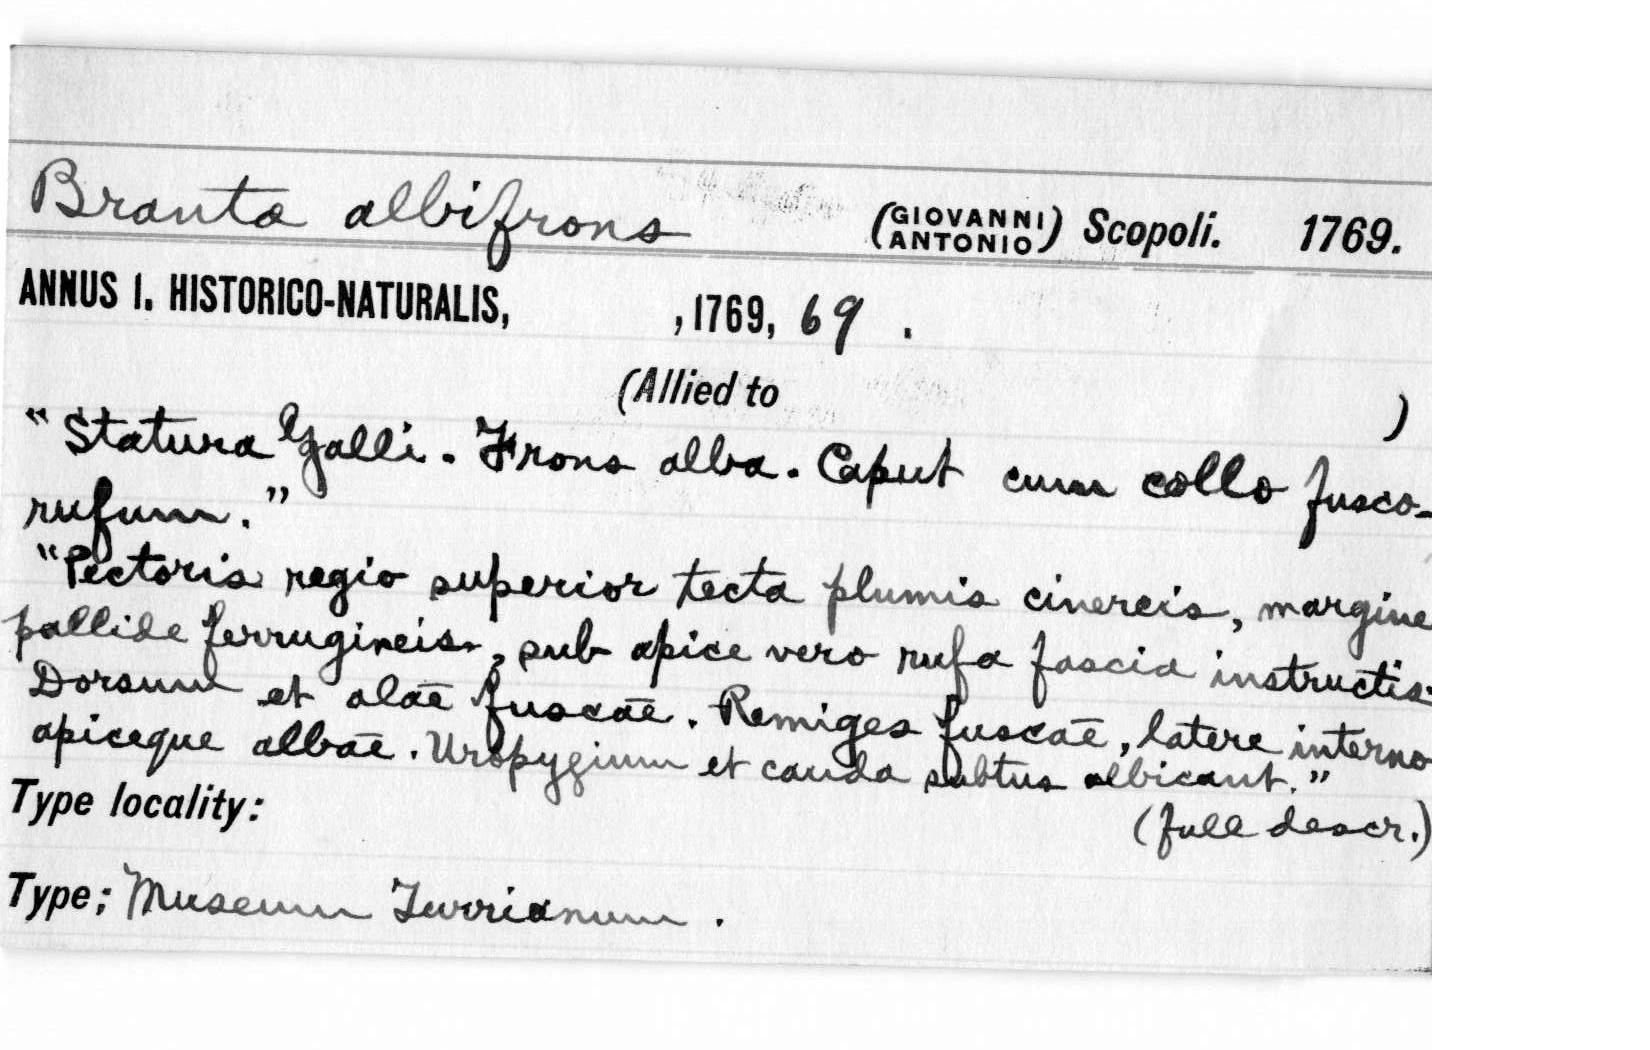 Branta albifrons (GIOVANNI ANTONIO) Scopoli. 1769.
ANNUS I. HISTORICO-NATURALIS, , 1769, 69 .
(Allied to )
"Statura Galli. Frons alba. Caput cum collo fusco-
rufum."
"Pectoris regio superior tecta plumis cinereis, margine
pallide ferrugineis, sub apice vero rufa fascia instructis.
Dorsum et alae fuscae. Remiges fuscae, latere interno
apiceque albae. Uropygium et cauda subtus albicant."
(full descr.)
Type locality:
Type; Museum Turrianum .